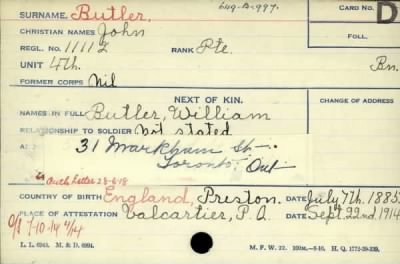 649-B-997.
SURNAME, Butler.
CARD NO.
D
CHRISTIAN NAMES John
FOLL.
REGL. NO. 11112 RANK Pte.
UNIT 4th. Bn.
FORMER CORPS Nil
NEXT OF KIN.
CHANGE OF ADDRESS
NAMES IN FULL Butler, William
RELATIONSHIP TO SOLDIER Not stated
31 Markham St.
Toronto Ont
Auth Letter 28-6-18
COUNTRY OF BIRTH England, Preston. DATE July 7th. 1885
PLACE OF ATTESTATION Valcartier, P.Q. DATE Sept. 22nd. 1914
L. L. 6943. M. & D. 6994.
M. F. W. 22.